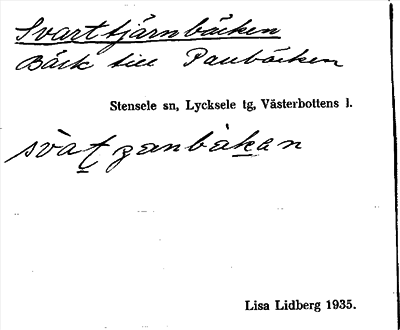 Svarttjärnbäcken
Bäck till Paubäcken
Stensele sn, Lycksele tg, Västerbottens l.
Lisa Lidberg 1935.